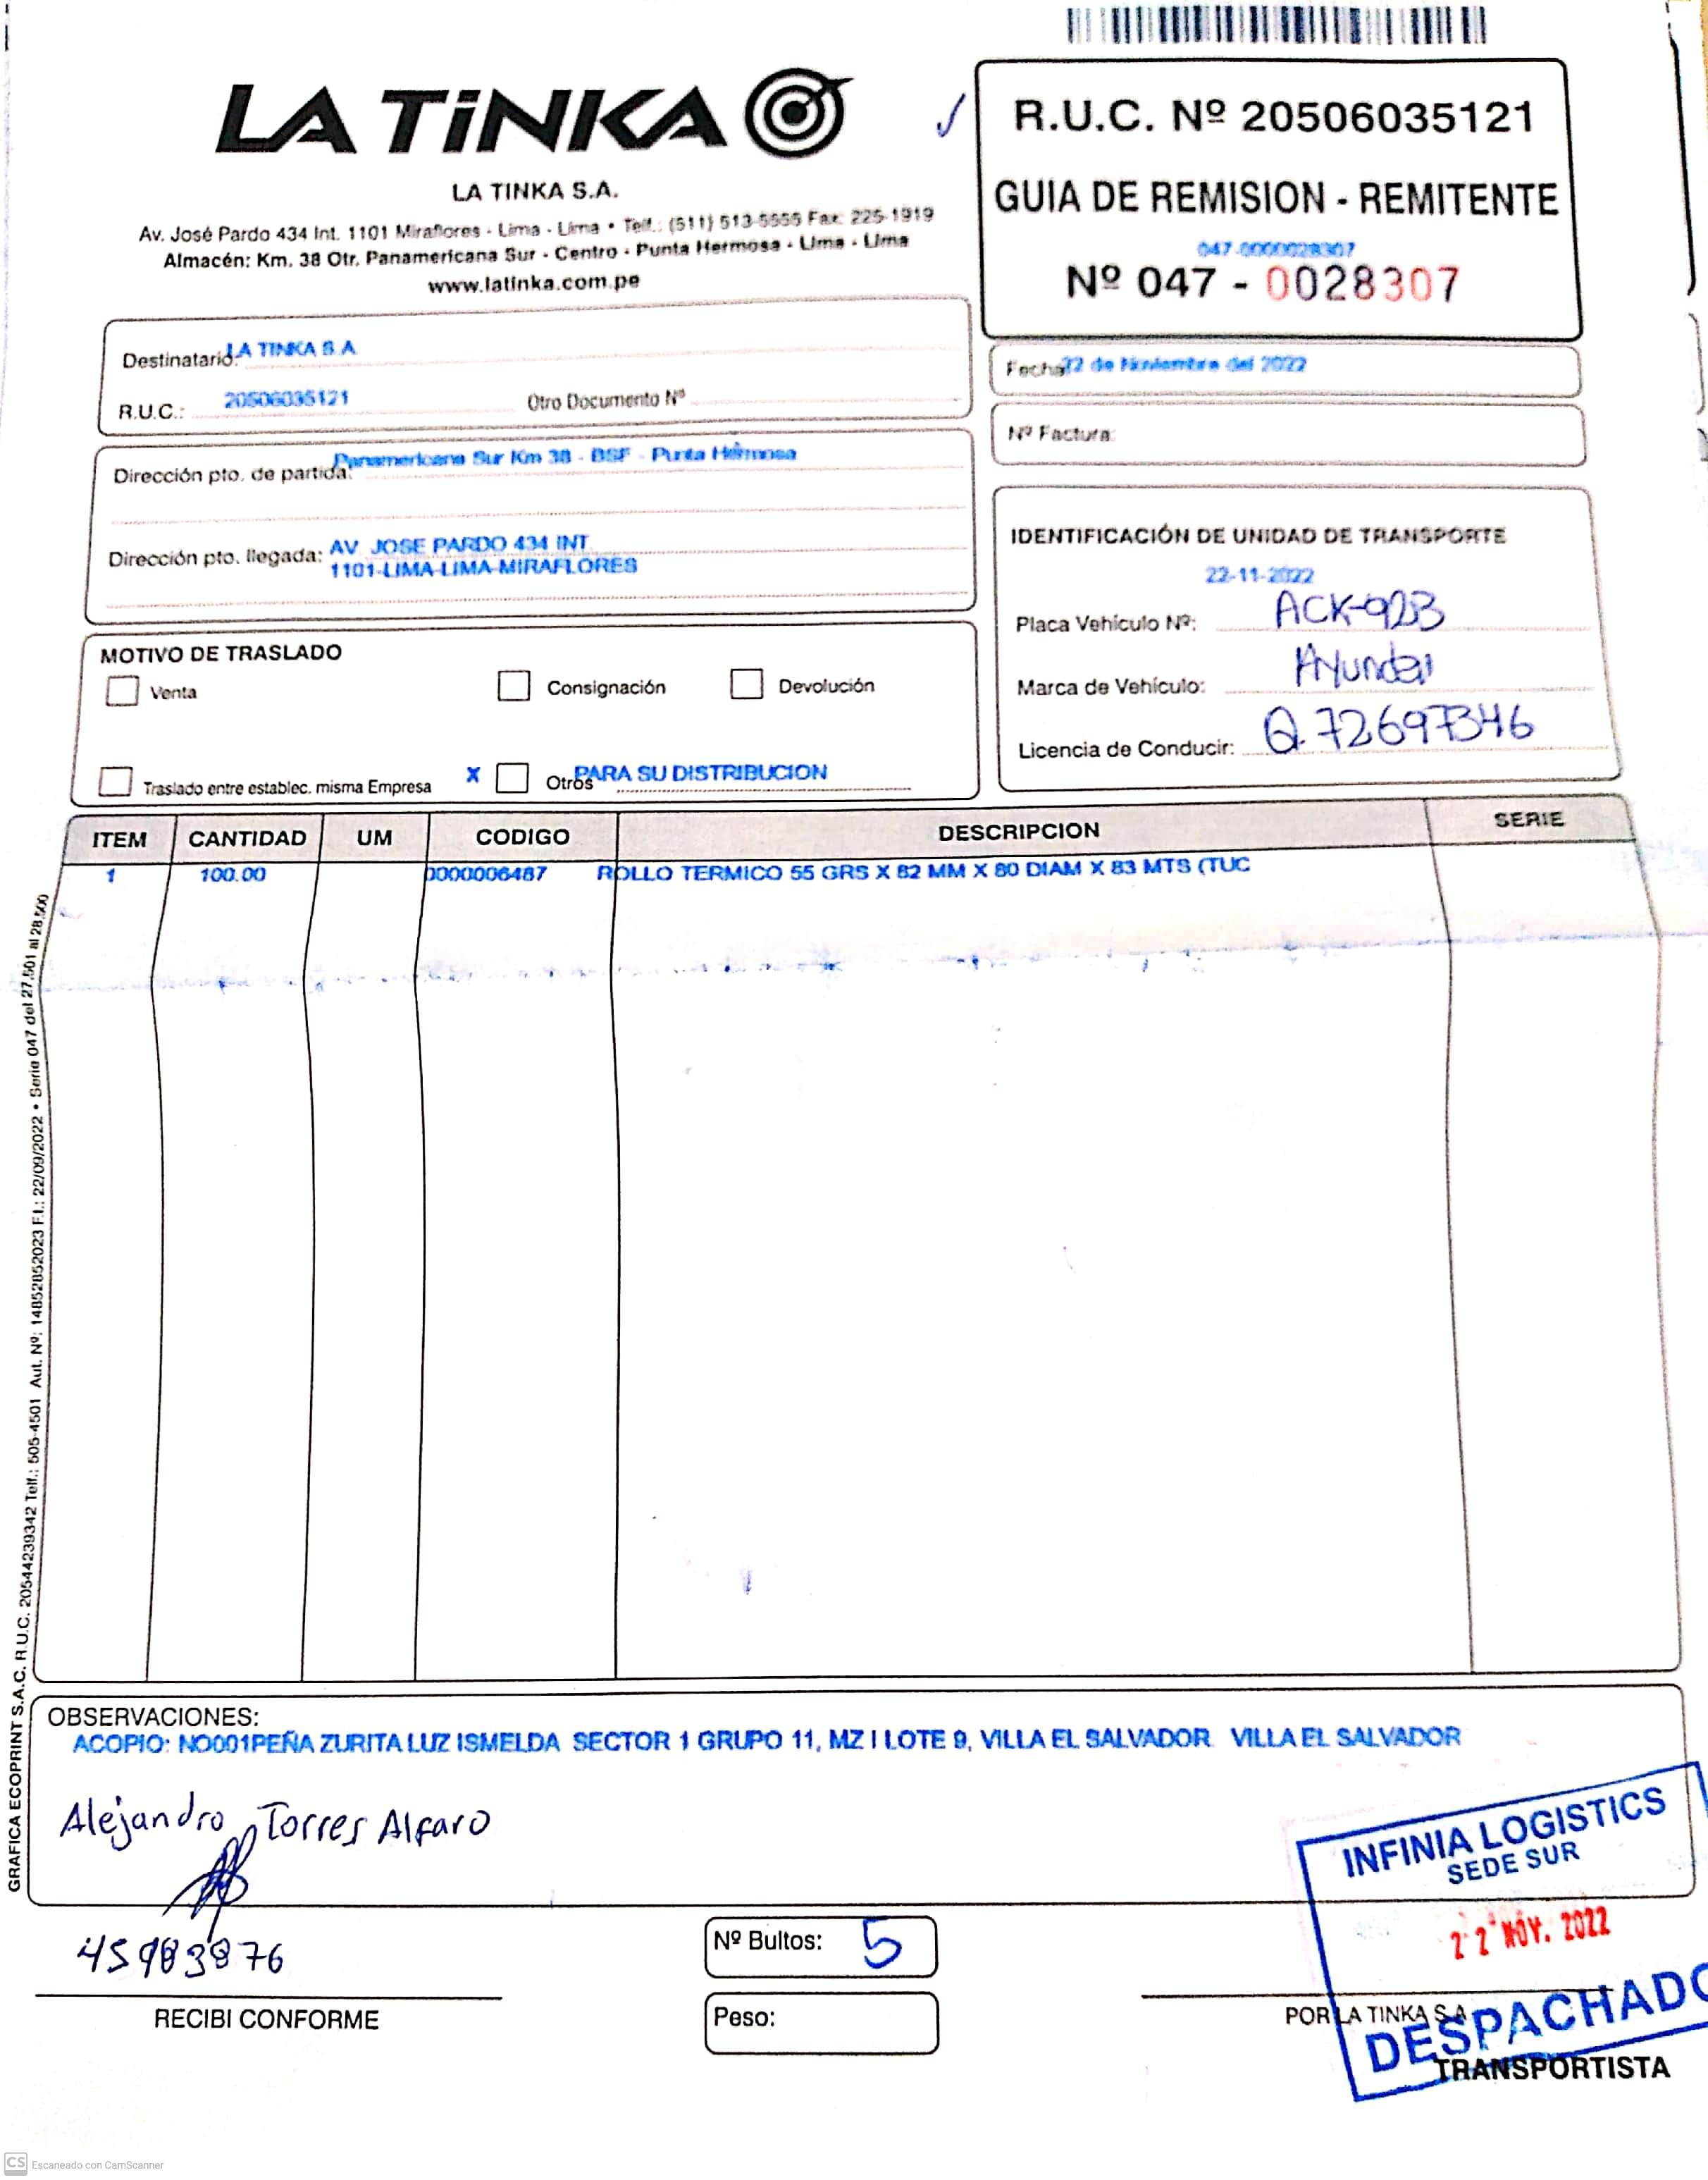 LA TiNKA
R.U.C. Nº 20506035121
GUIA DE REMISION - REMITENTE
047-0000028307
Nº 047 - 0028307
LA TINKA S.A.
Av. José Pardo 434 Int. 1101 Miraflores - Lima - Lima • Telf.: (511) 513-5555 Fax: 225-1919
Almacén: Km. 38 Otr. Panamericana Sur - Centro - Punta Hermosa - Lima - Lima
www.latinka.com.pe
Destinatario: LA TINKA S.A
R.U.C.: 20506035121 Otro Documento Nº
Fecha: 22 de Noviembre del 2022
Nº Factura:
Dirección pto. de partida: Panamericana Sur Km 38 - BSF - Punta Hermosa
Dirección pto. llegada: AV. JOSE PARDO 434 INT.
1101-LIMA-LIMA-MIRAFLORES
IDENTIFICACIÓN DE UNIDAD DE TRANSPORTE
22-11-2022
Placa Vehículo Nº: ACK-923
Marca de Vehículo: Hyundai
Licencia de Conducir: Q.72697346
MOTIVO DE TRASLADO
Venta Consignación Devolución
Traslado entre establec. misma Empresa X Otros PARA SU DISTRIBUCION
ITEM CANTIDAD UM CODIGO DESCRIPCION SERIE
1 100.00 0000006487 ROLLO TERMICO 55 GRS X 82 MM X 80 DIAM X 83 MTS (TUC
GRAFICA ECOPRINT S.A.C. R.U.C. 20544239342 Telf.: 505-4501 Aut. Nº: 14852852023 F.I.: 22/09/2022 • Serie 047 del 27,501 al 28,500
OBSERVACIONES:
ACOPIO: NO001PEÑA ZURITA LUZ ISMELDA SECTOR 1 GRUPO 11, MZ I LOTE 9, VILLA EL SALVADOR VILLA EL SALVADOR
Alejandro Torres Alfaro
45983876
RECIBI CONFORME
Nº Bultos: 5
Peso:
INFINIA LOGISTICS
SEDE SUR
22 NOV. 2022
DESPACHADO
POR LA TINKA S.A.
TRANSPORTISTA
CS Escaneado con CamScanner